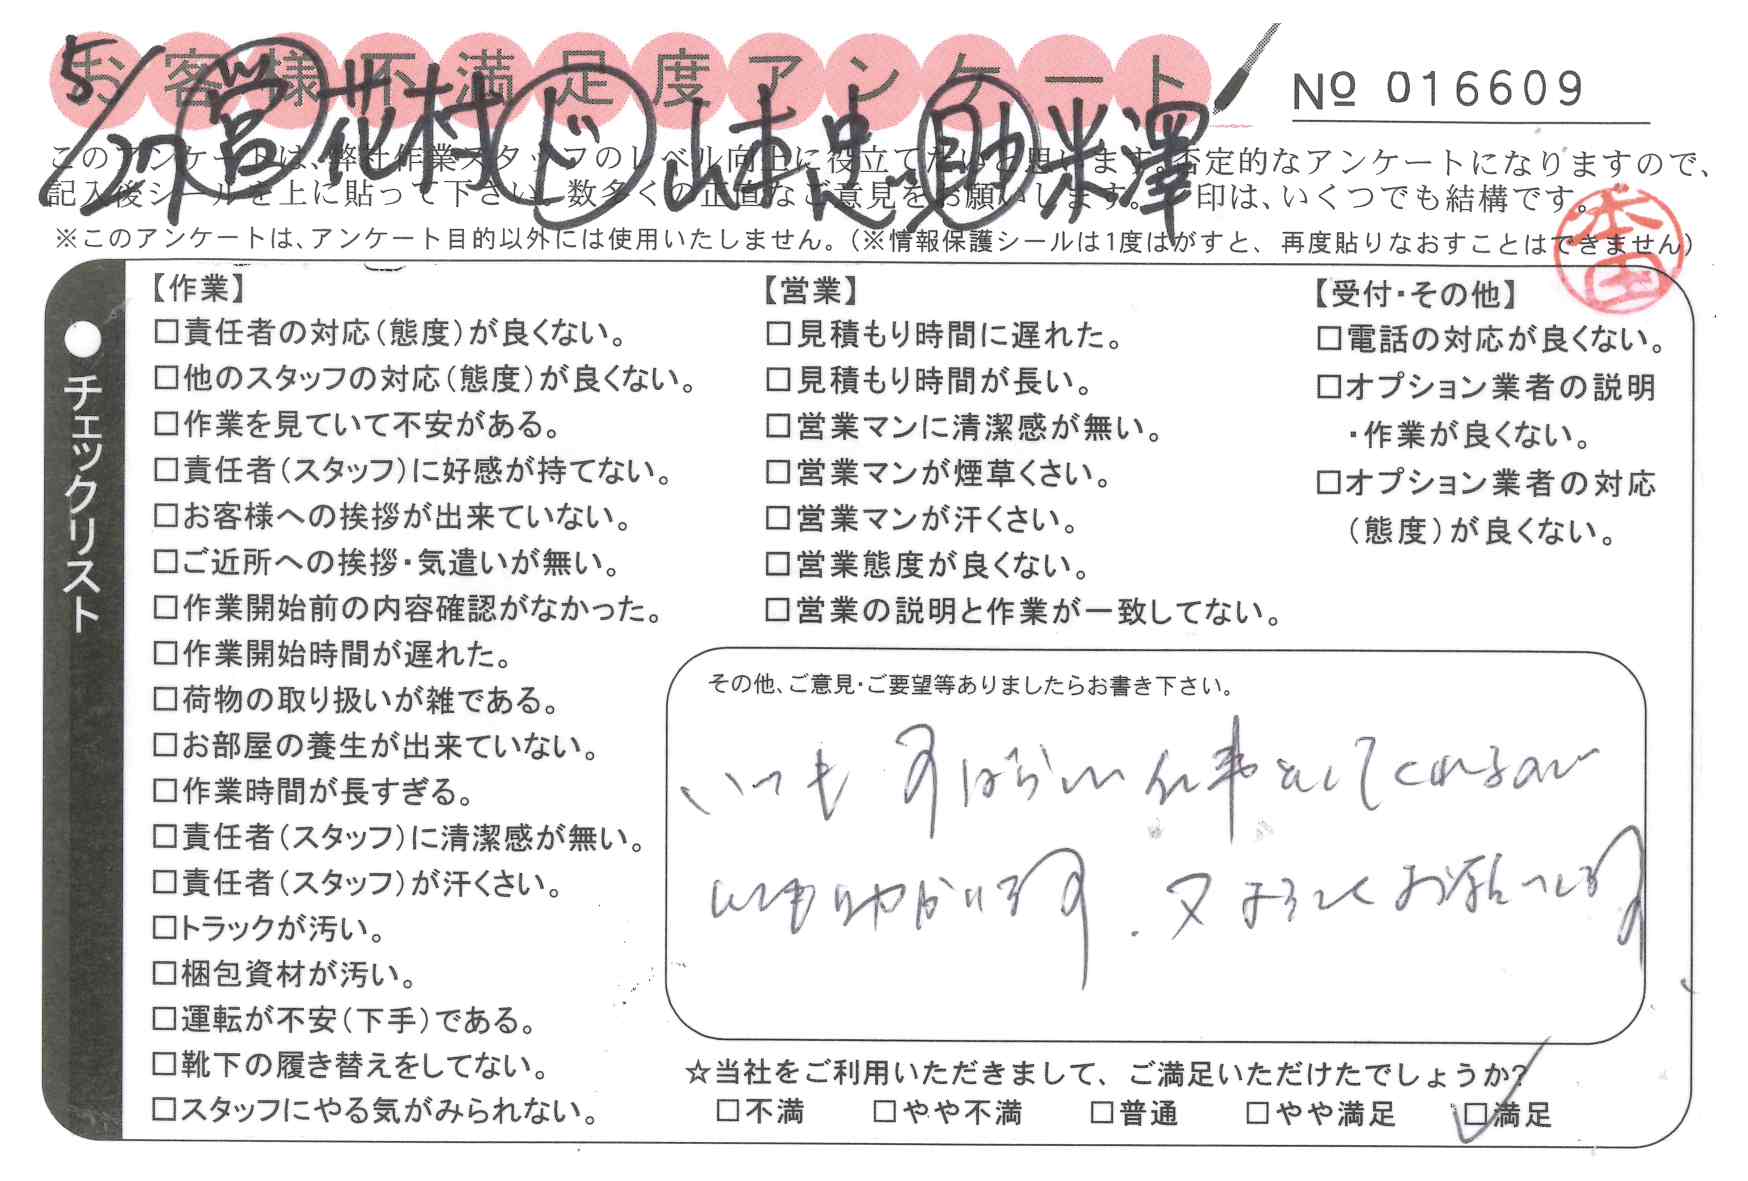 お客様不満足度アンケート
№ 016609
5/27 営 花村 ド 山本忠 助 米澤
このアンケートは、弊社作業スタッフのレベル向上に役立てたいと思います。否定的なアンケートになりますので、
記入後シールを上に貼って下さい。数多くの正直なご意見をお願いします。✓印は、いくつでも結構です。
※このアンケートは、アンケート目的以外には使用いたしません。（※情報保護シールは1度はがすと、再度貼りなおすことはできません）
本田
●チェックリスト
【作業】
□責任者の対応（態度）が良くない。
□他のスタッフの対応（態度）が良くない。
□作業を見ていて不安がある。
□責任者（スタッフ）に好感が持てない。
□お客様への挨拶が出来ていない。
□ご近所への挨拶・気遣いが無い。
□作業開始前の内容確認がなかった。
□作業開始時間が遅れた。
□荷物の取り扱いが雑である。
□お部屋の養生が出来ていない。
□作業時間が長すぎる。
□責任者（スタッフ）に清潔感が無い。
□責任者（スタッフ）が汗くさい。
□トラックが汚い。
□梱包資材が汚い。
□運転が不安（下手）である。
□靴下の履き替えをしてない。
□スタッフにやる気がみられない。
【営業】
□見積もり時間に遅れた。
□見積もり時間が長い。
□営業マンに清潔感が無い。
□営業マンが煙草くさい。
□営業マンが汗くさい。
□営業態度が良くない。
□営業の説明と作業が一致してない。
【受付・その他】
□電話の対応が良くない。
□オプション業者の説明
・作業が良くない。
□オプション業者の対応
（態度）が良くない。
その他、ご意見・ご要望等ありましたらお書き下さい。
いつも すばらしい仕事をしてくれるので
いつも助かります。又よろしくお願いします
☆当社をご利用いただきまして、ご満足いただけたでしょうか?
□不満 □やや不満 □普通 □やや満足 ☑満足